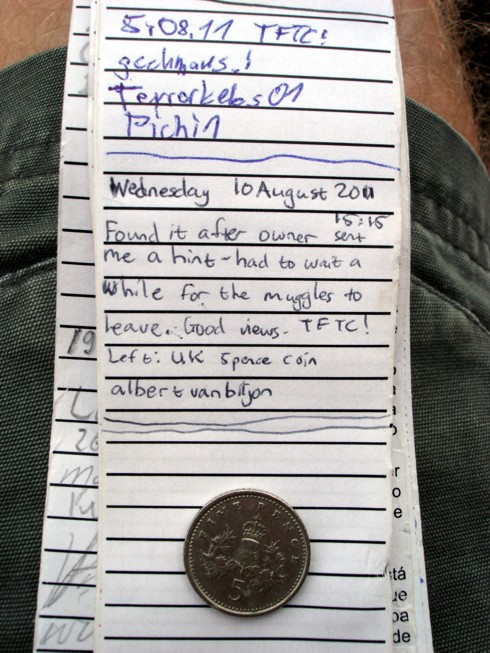 5,08,11 TFTC!
Terrorkeks01
Pichi1
Wednesday 10 August 2011
15:15
Found it after owner sent
me a hint - had to wait a
while for the muggles to
leave. Good views. TFTC!
Left: UK 5 pence coin
albert van biljon
19
20
FIVE PENCE
5
r
o
e
stá
ue
oa
de